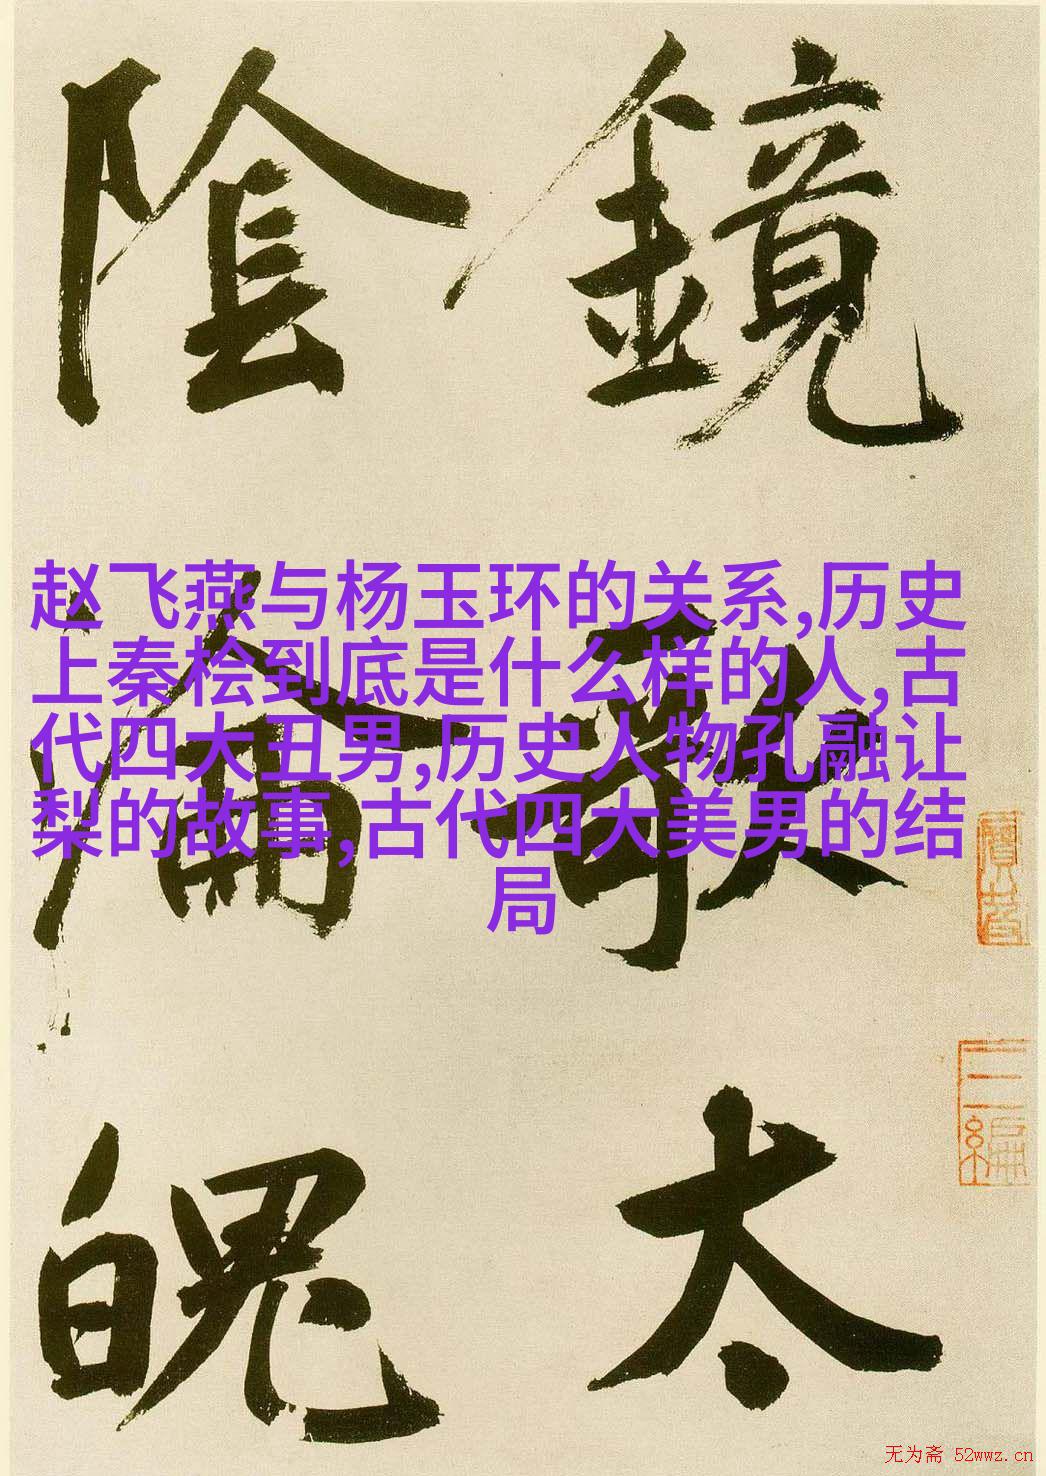 鏡
歌
太
陰
淪
魄
赵飞燕与杨玉环的关系,历史
上秦桧到底是什么样的人,古
代四大丑男,历史人物孔融让
梨的故事,古代四大美男的结
局
三編
无为斋 52wwz.cn